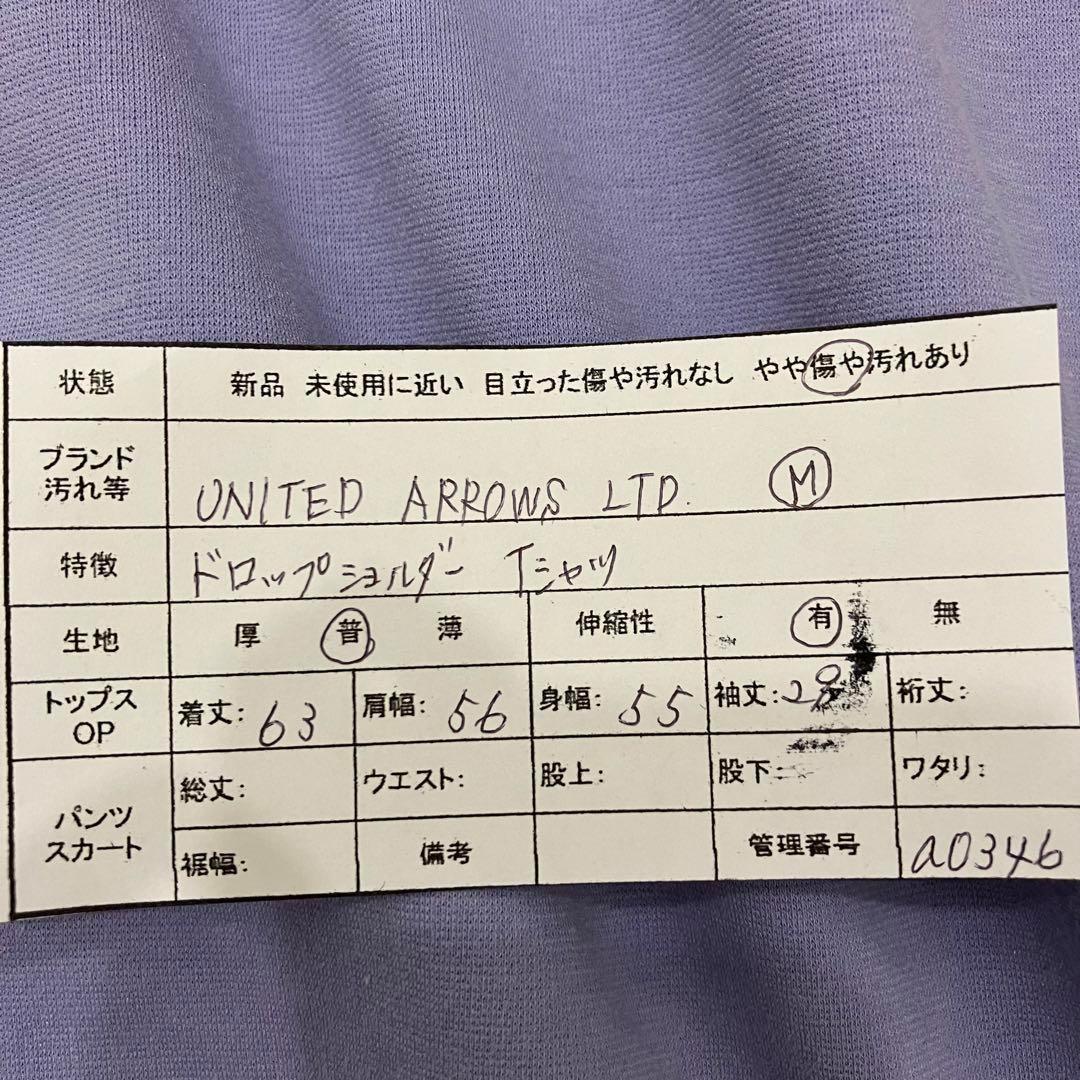 状態 新品 未使用に近い 目立った傷や汚れなし やや傷や汚れあり
ブランド
汚れ等
UNITED ARROWS LTD. M
特徴 ドロップショルダー Tシャツ
生地 厚 普 薄 伸縮性 有 無
トップス
OP
着丈: 63 肩幅: 56 身幅: 55 袖丈: 29 裄丈:
パンツ
スカート
総丈: ウエスト: 股上: 股下: ワタリ:
裾幅: 備考 管理番号 a0346